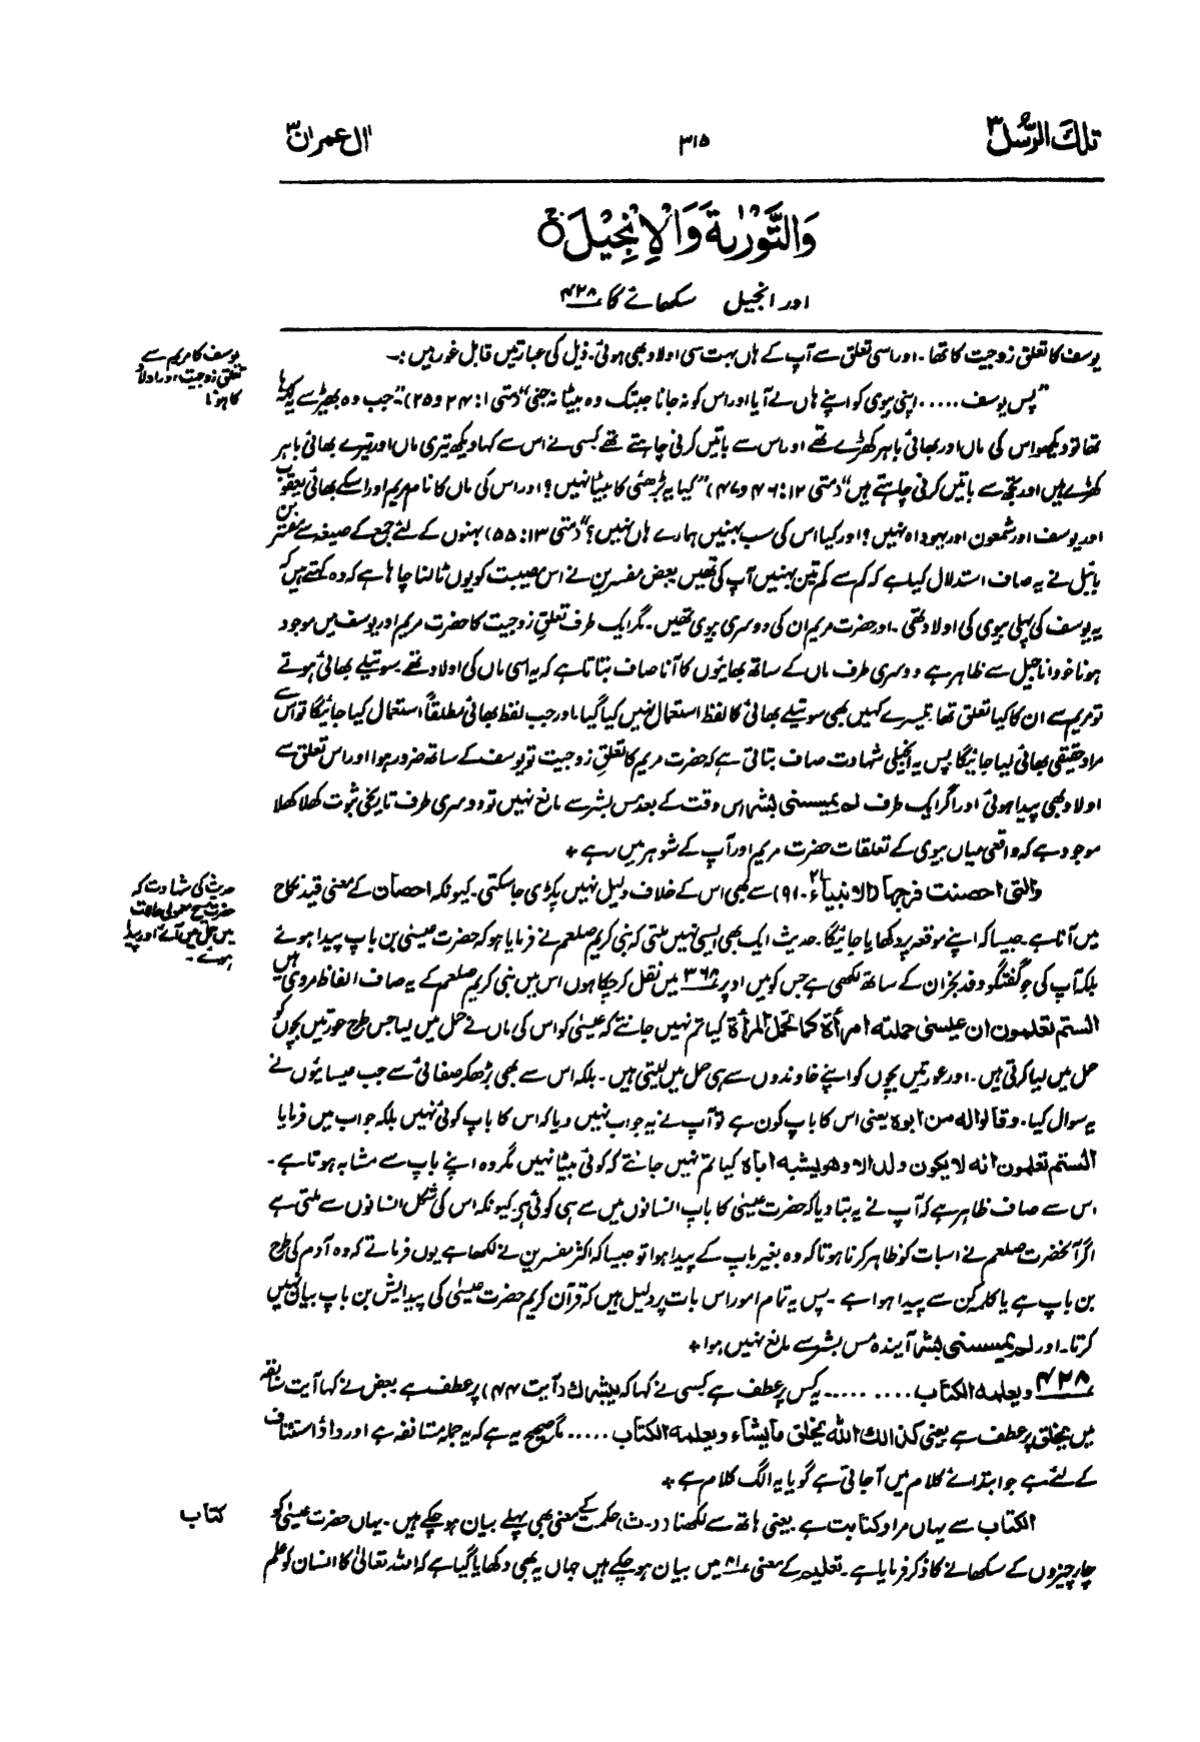 تلك الرّسل ۳
۳۱۵
اٰل عمران ۳
وَالتَّوْرٰىةَ وَالْاِنْجِيْلَ
اور انجیل سکھائے گا ۴۲۸
یوسف کا تعلق زوجیت کا تھا۔ اور اسی تعلق سے آپ کے ہاں بہت سی اولاد بھی ہوئی۔ ذیل کی عبارتیں قابل غور ہیں:۔
یوسف کا مریم سے
تعلق زوجیت اور اولاد
کا ہونا
"پس یوسف ..... اپنی بیوی کو اپنے ہاں لے آیا اور اس کو نہ جانا جبتک وہ بیٹا نہ جنی" (متی ۱: ۲۴ و ۲۵)۔ "جب وہ بھیڑ سے یہ کہہ رہا
تھا تو دیکھو اس کی ماں اور بھائی باہر کھڑے تھے اور اس سے باتیں کرنی چاہتے تھے کسی نے اس سے کہا دیکھ تیری ماں اور تیرے بھائی باہر
کھڑے ہیں اور تجھ سے باتیں کرنی چاہتے ہیں" (متی ۱۲: ۴۶ و ۴۷) "کیا یہ بڑھئی کا بیٹا نہیں؟ اور اس کی ماں کا نام مریم اور اسکے بھائی یعقوب
اور یوسف اور شمعون اور یہوداہ نہیں؟ اور کیا اس کی سب بہنیں ہمارے ہاں نہیں؟" (متی ۱۳: ۵۵) بہنوں کے لئے جمع کے صیغہ سے مفسرین
بائبل نے یہ صاف استدلال کیا ہے کہ کم سے کم تین بہنیں آپ کی تھیں بعض مفسرین نے اس مصیبت کو یوں ٹالنا چاہا ہے کہ وہ کہتے ہیں کہ
یہ یوسف کی پہلی بیوی کی اولاد تھی۔ اور حضرت مریم ان کی دوسری بیوی تھیں۔ مگر ایک طرف تعلق زوجیت کا حضرت مریم اور یوسف میں موجود
ہونا خود اناجیل سے ظاہر ہے دوسری طرف ماں کے ساتھ بھائیوں کا آنا صاف بتاتا ہے کہ یہ اسی ماں کی اولاد تھے۔ سوتیلے بھائی ہوتے
تو مریم سے ان کا کیا تعلق تھا۔ تیسرے کہیں بھی سوتیلے بھائی کا لفظ استعمال نہیں کیا گیا۔ اور جب لفظ بھائی مطلقاً استعمال کیا جائیگا تو اس سے
مراد حقیقی بھائی لیا جائیگا۔ پس یہ انجیلی شہادت صاف بتاتی ہے کہ حضرت مریم کا تعلق زوجیت تو یوسف کے ساتھ ضرور ہوا اور اس تعلق سے
اولاد بھی پیدا ہوئی اور اگر ایک طرف لم یمسسنی بشر اس وقت کے بعد مس بشر سے مانع نہیں تو دوسری طرف تاریخی ثبوت کھلا کھلا
موجود ہے کہ واقعی میاں بیوی کے تعلقات حضرت مریم اور آپ کے شوہر میں رہے +
والتی احصنت فرجہا (الانبیاء ۲۱۔ ۹۱) سے بھی اس کے خلاف دلیل نہیں پکڑی جا سکتی۔ کیونکہ احصان کے معنی قید نکاح
حدیث کی شہادت کہ
حضرت مسیح معمولی حالات
میں حمل میں آئے اور پیدا
ہوئے۔
میں آنا ہے۔ جیسا کہ اپنے موقعہ پر دکھایا جائیگا۔ حدیث ایک بھی ایسی نہیں ملتی کہ نبی کریم صلعم نے فرمایا ہو کہ حضرت عیسیٰ بن باپ پیدا ہوئے
بلکہ آپ کی جو گفتگو وفد نجران کے ساتھ لکھی ہے جس کو میں اوپر ۳۶۸ میں نقل کر چکا ہوں اس میں نبی کریم صلعم کے یہ صاف الفاظ مروی ہیں
الستم تعلمون ان عیسیٰ حملتہ امرأۃ کما تحمل المرأۃ کیا تم نہیں جانتے کہ عیسیٰ کو اس کی ماں نے حمل میں لیا جس طرح عورتیں بچوں کو
حمل میں لیا کرتی ہیں۔ اور عورتیں بچوں کو اپنے خاوندوں سے ہی حمل میں لیتی ہیں۔ بلکہ اس سے بھی بڑھکر صفائی سے جب عیسائیوں نے
یہ سوال کیا۔ وقالوا لہ من ابوہ یعنی اس کا باپ کون ہے تو آپ نے یہ جواب نہیں دیا کہ اس کا باپ کوئی نہیں بلکہ جواب میں فرمایا
الستم تعلمون انہ لا یکون ولد الا وھو یشبہ اباہ کیا تم نہیں جانتے کہ کوئی بیٹا نہیں مگر وہ اپنے باپ سے مشابہ ہوتا ہے۔
اس سے صاف ظاہر ہے کہ آپ نے یہ بتا دیا کہ حضرت عیسیٰ کا باپ انسانوں میں سے ہی کوئی ہے کیونکہ اس کی شکل انسانوں سے ملتی ہے
اگر آنحضرت صلعم نے اسبات کو ظاہر کرنا ہوتا کہ وہ بغیر باپ کے پیدا ہوا تو جیسا کہ اکثر مفسرین نے لکھا ہے یوں فرماتے کہ وہ آدم کی طرح
بن باپ ہے یا کلمہ کن سے پیدا ہوا ہے۔ پس یہ تمام امور اس بات پر دلیل ہیں کہ قرآن کریم حضرت عیسیٰ کی پیدایش بن باپ بیان نہیں
کرتا۔ اور لم یمسسنی بشر آیندہ مس بشر سے مانع نہیں ہوا +
۴۲۸ ویعلمہ الکتاب ......... یہ کس پر عطف ہے کسی نے کہا کہ یبشرك (آیت ۴۴) پر عطف ہے بعض نے کہا آیت سابقہ
میں یخلق پر عطف ہے یعنی کذالك اللہ یخلق ما یشاء ویعلمہ الکتاب ..... مگر صحیح یہ ہے کہ یہ جملہ مستانفہ ہے اور واؤ استئناف
کے لئے ہے جو ابتدائے کلام میں آجاتی ہے گویا یہ الگ کلام ہے +
الکتاب سے یہاں مراد کتابت ہے۔ یعنی ہاتھ سے لکھنا (ر۔ ث) حکمت کے معنی بھی پہلے بیان ہو چکے ہیں۔ یہاں حضرت عیسیٰ کو
کتاب
چار چیزوں کے سکھانے کا ذکر فرمایا ہے۔ تعلیم کے معنی میں بیان ہو چکے ہیں جہاں یہ بھی دکھایا گیا ہے کہ اللہ تعالیٰ کا انسان کو علم